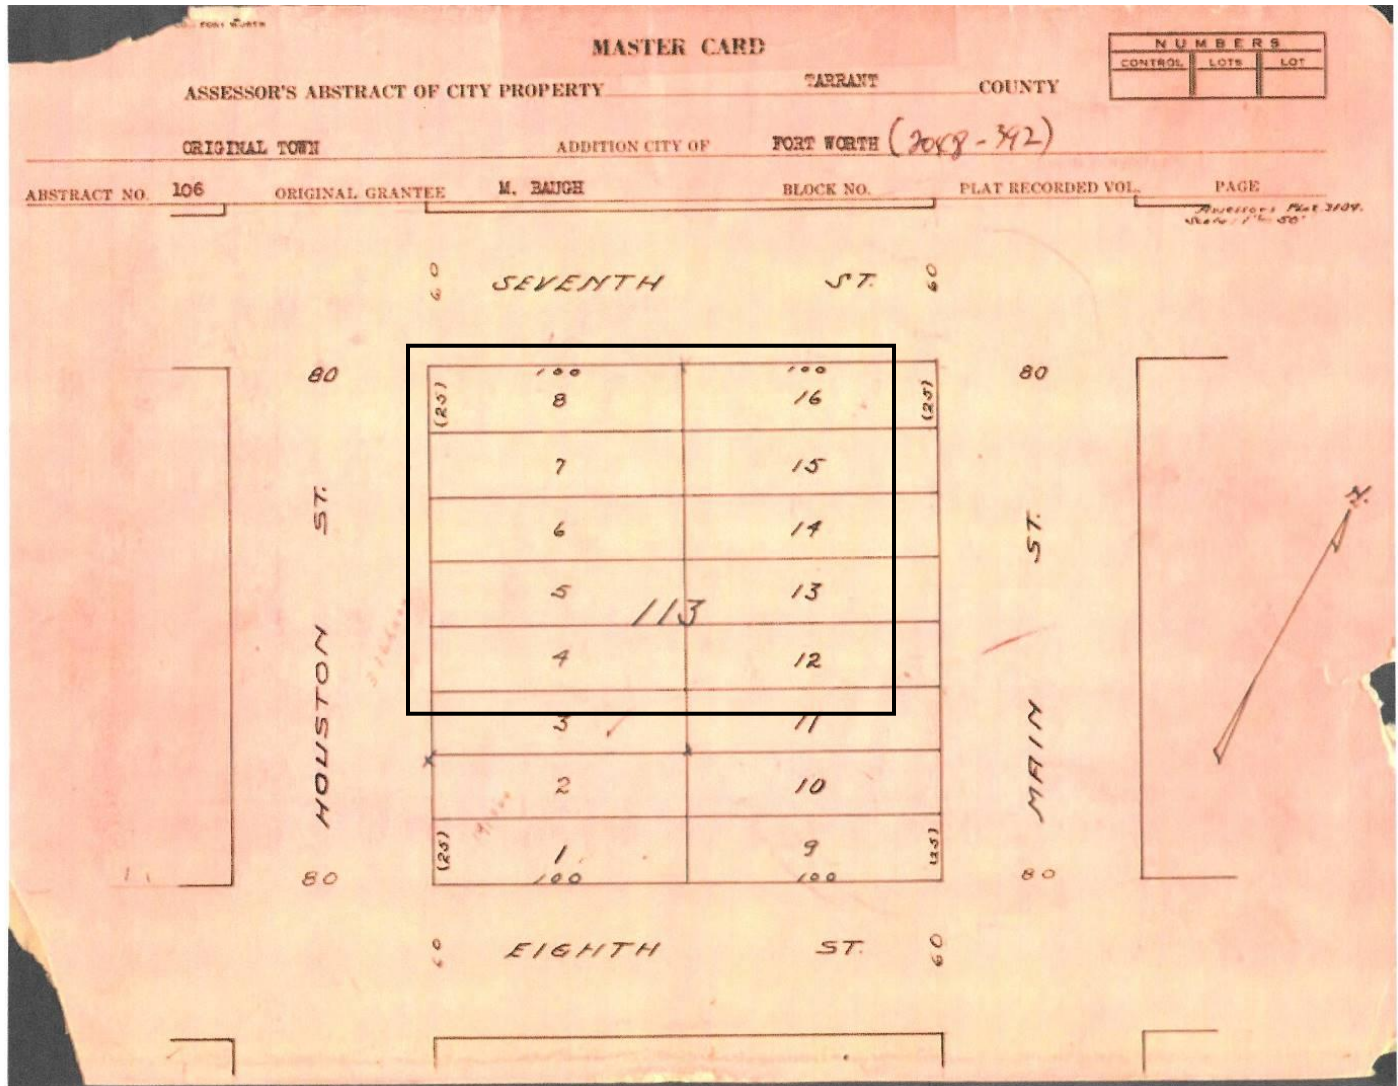 FORT WORTH
MASTER CARD
NUMBERS
CONTROL LOTS LOT
ASSESSOR'S ABSTRACT OF CITY PROPERTY TARRANT COUNTY
ORIGINAL TOWN ADDITION CITY OF FORT WORTH (2048-392)
ABSTRACT NO. 106 ORIGINAL GRANTEE M. BAUGH BLOCK NO. PLAT RECORDED VOL. PAGE
Assessors Plat 3109.
Scale: 1"= 50'
60 SEVENTH ST. 60
80 100 100 80
(25) 8 16 (25)
7 15
6 14
5 13
113
4 12
3 11
2 10
(25) 1 9 (25)
80 100 100 80
HOUSTON ST.
MAIN ST.
N.
60 EIGHTH ST. 60